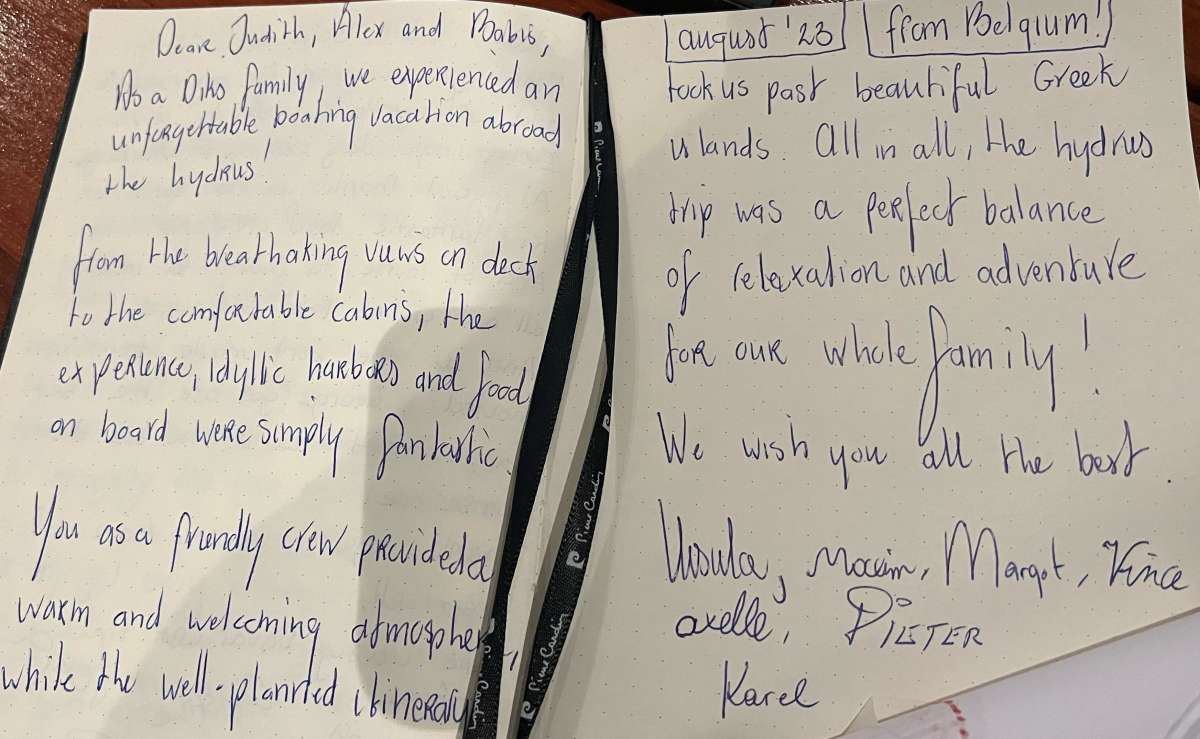 Deare Judith, Alex and Babis,
As a Diks family, we experienced an
unforgettable boating vacation abroad
the hydrus!
from the breathaking views on deck
to the comfortable cabins, the
experience, idyllic harbors and food
on board were simply fantastic.
You as a friendly crew provided a
warm and welcoming atmospher
while the well-planned itinerary
august '23
from Belgium!
took us past beautiful Greek
islands. All in all, the hydrus
trip was a perfect balance
of relaxation and adventure
for our whole family!
We wish you all the best.
Ursula, Maxim, Margot, Vince
axelle, PIETER
Karel
Pierre Cardin
Pierre Cardin
Pierre Cardin